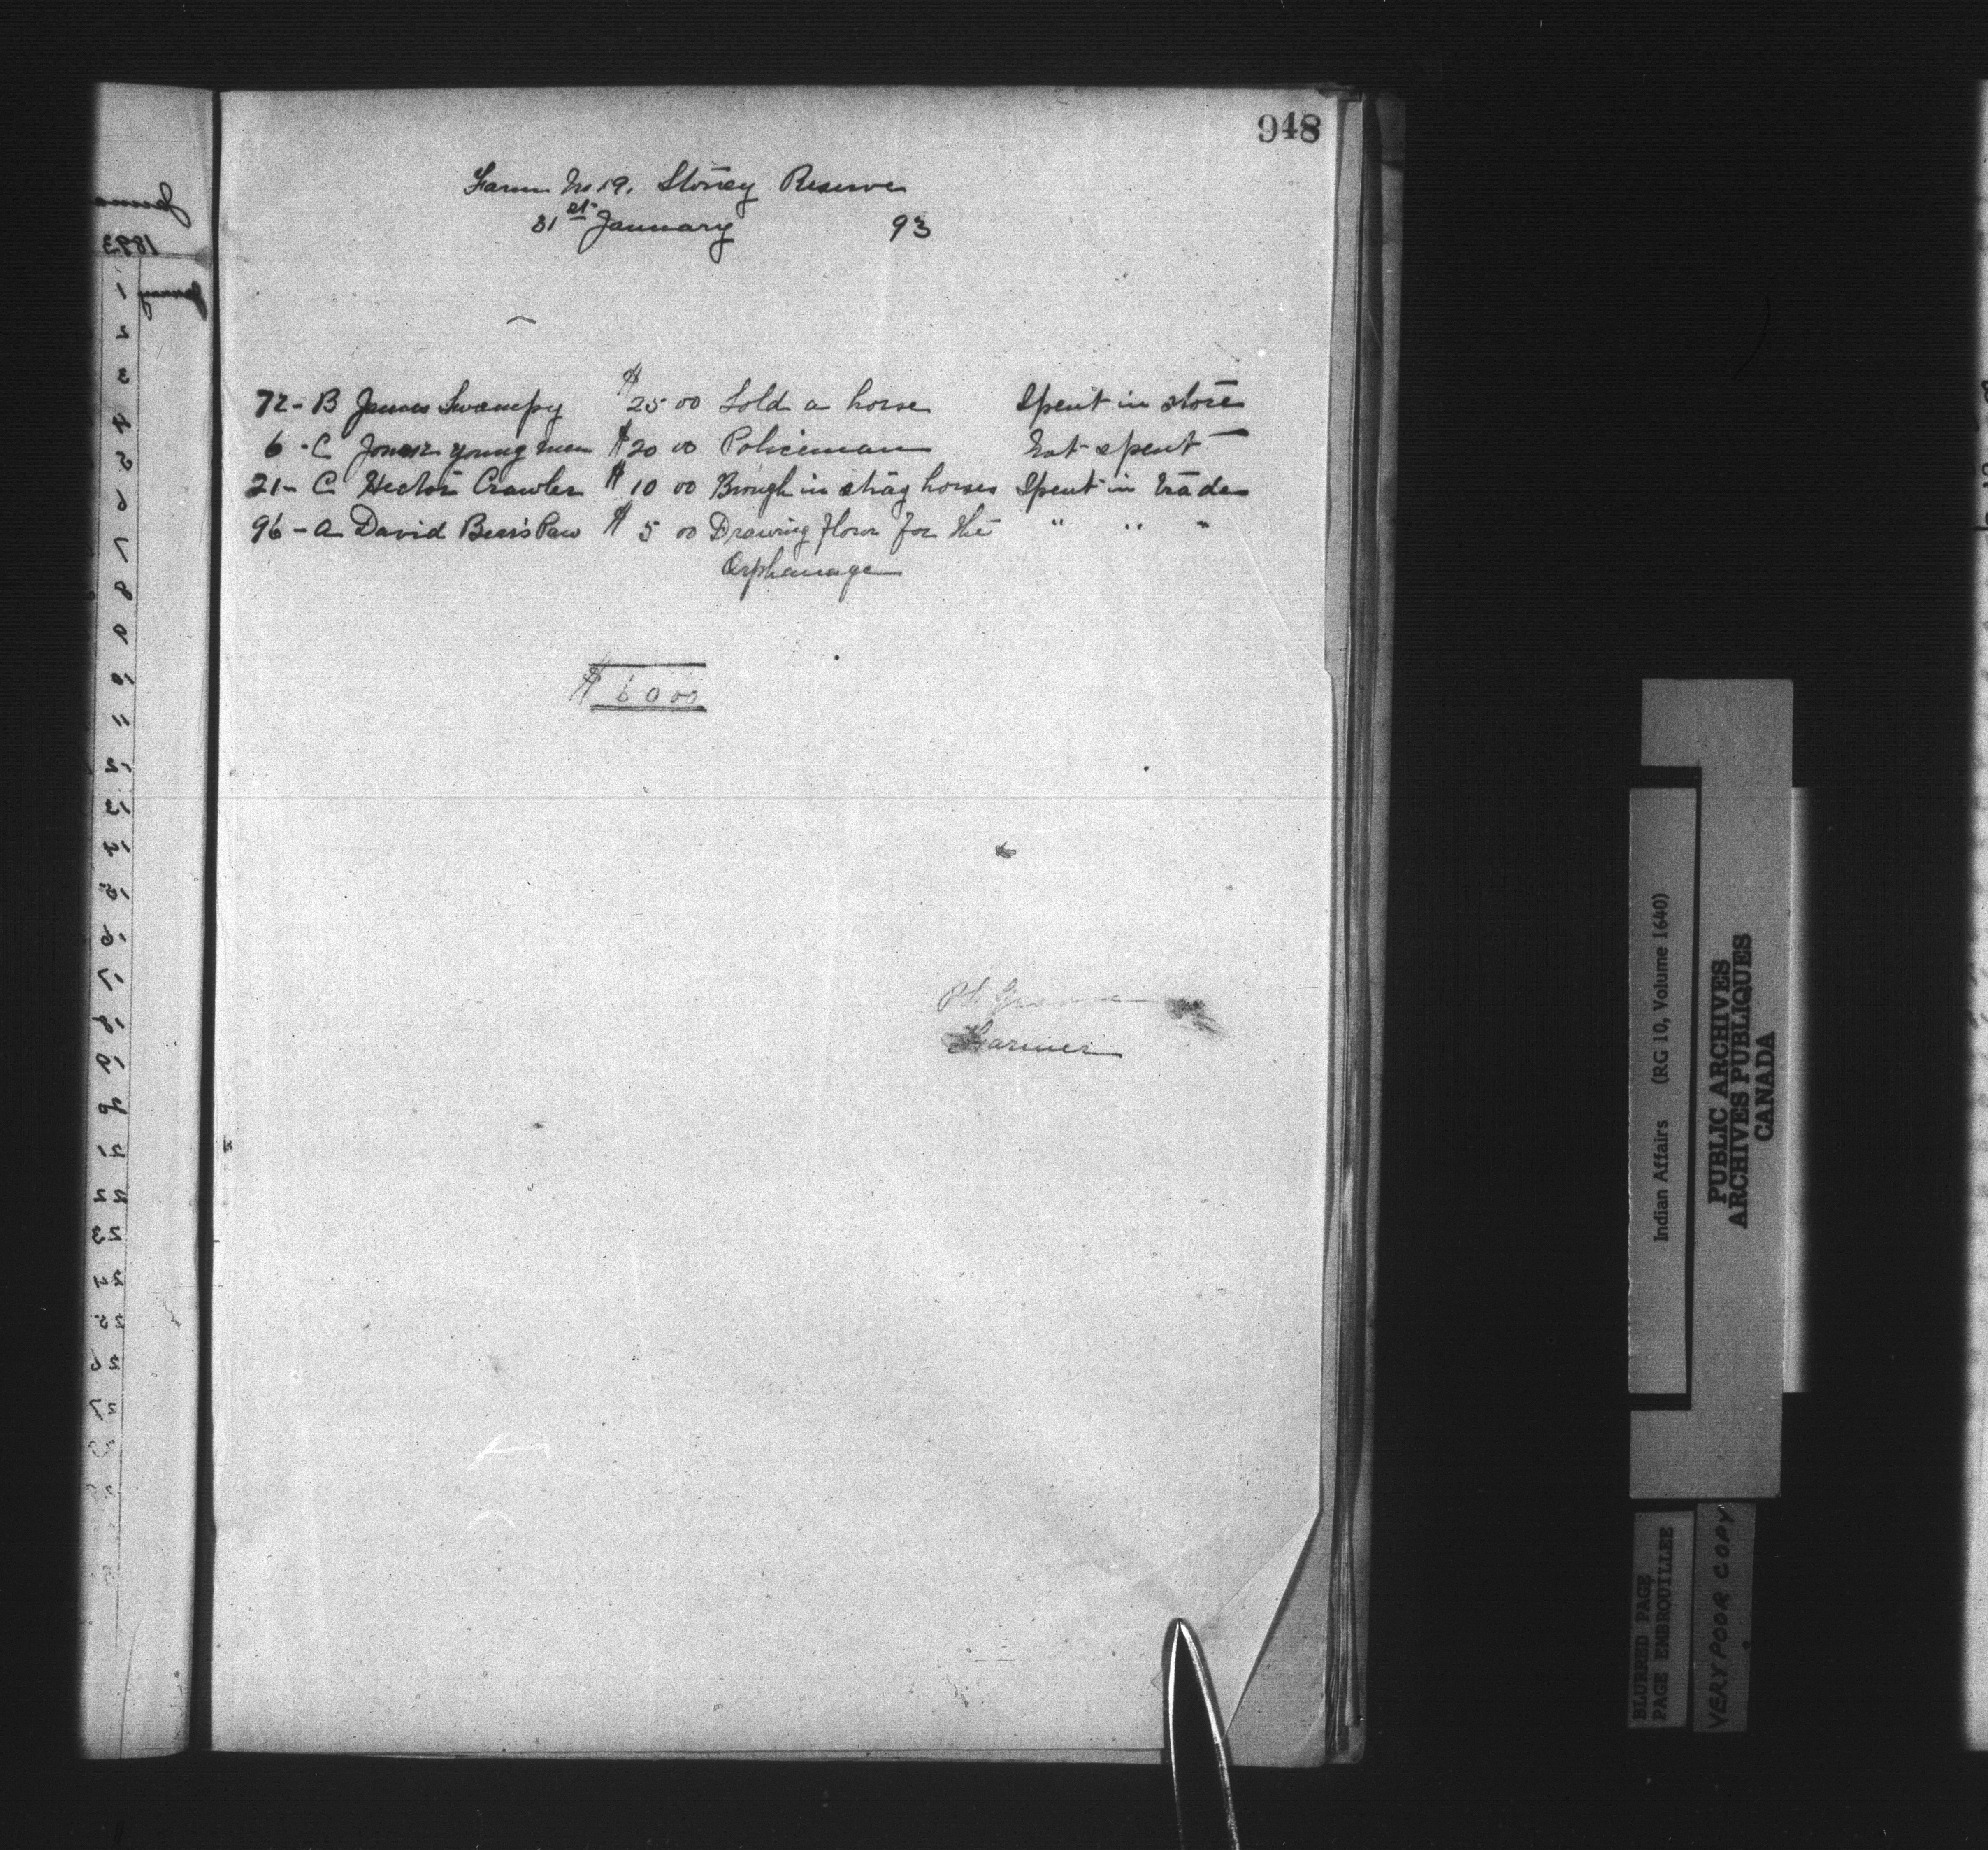 948
Farm No 19. Stoney Reserve
31st January 93
72 - B James Swampy $ 25 00 Sold a horse Spent in store
6 - C Jonas young men $ 20 00 Policeman Not spent
21 - C Hector Crawler $ 10 00 Brough in strag horses Spent in trade
96 - a David Bears Paw $ 5 00 Drawing flour for the " " "
Orphanage
$ 60 00
Farmer
1893
1
2
3
4
5
6
7
8
9
10
11
12
13
14
15
16
17
18
19
20
21
22
23
24
25
26
27
Indian Affairs (RG 10, Volume 1640)
PUBLIC ARCHIVES
ARCHIVES PUBLIQUES
CANADA
BLURRED PAGE
PAGE EMBROUILLEE
VERY POOR COPY